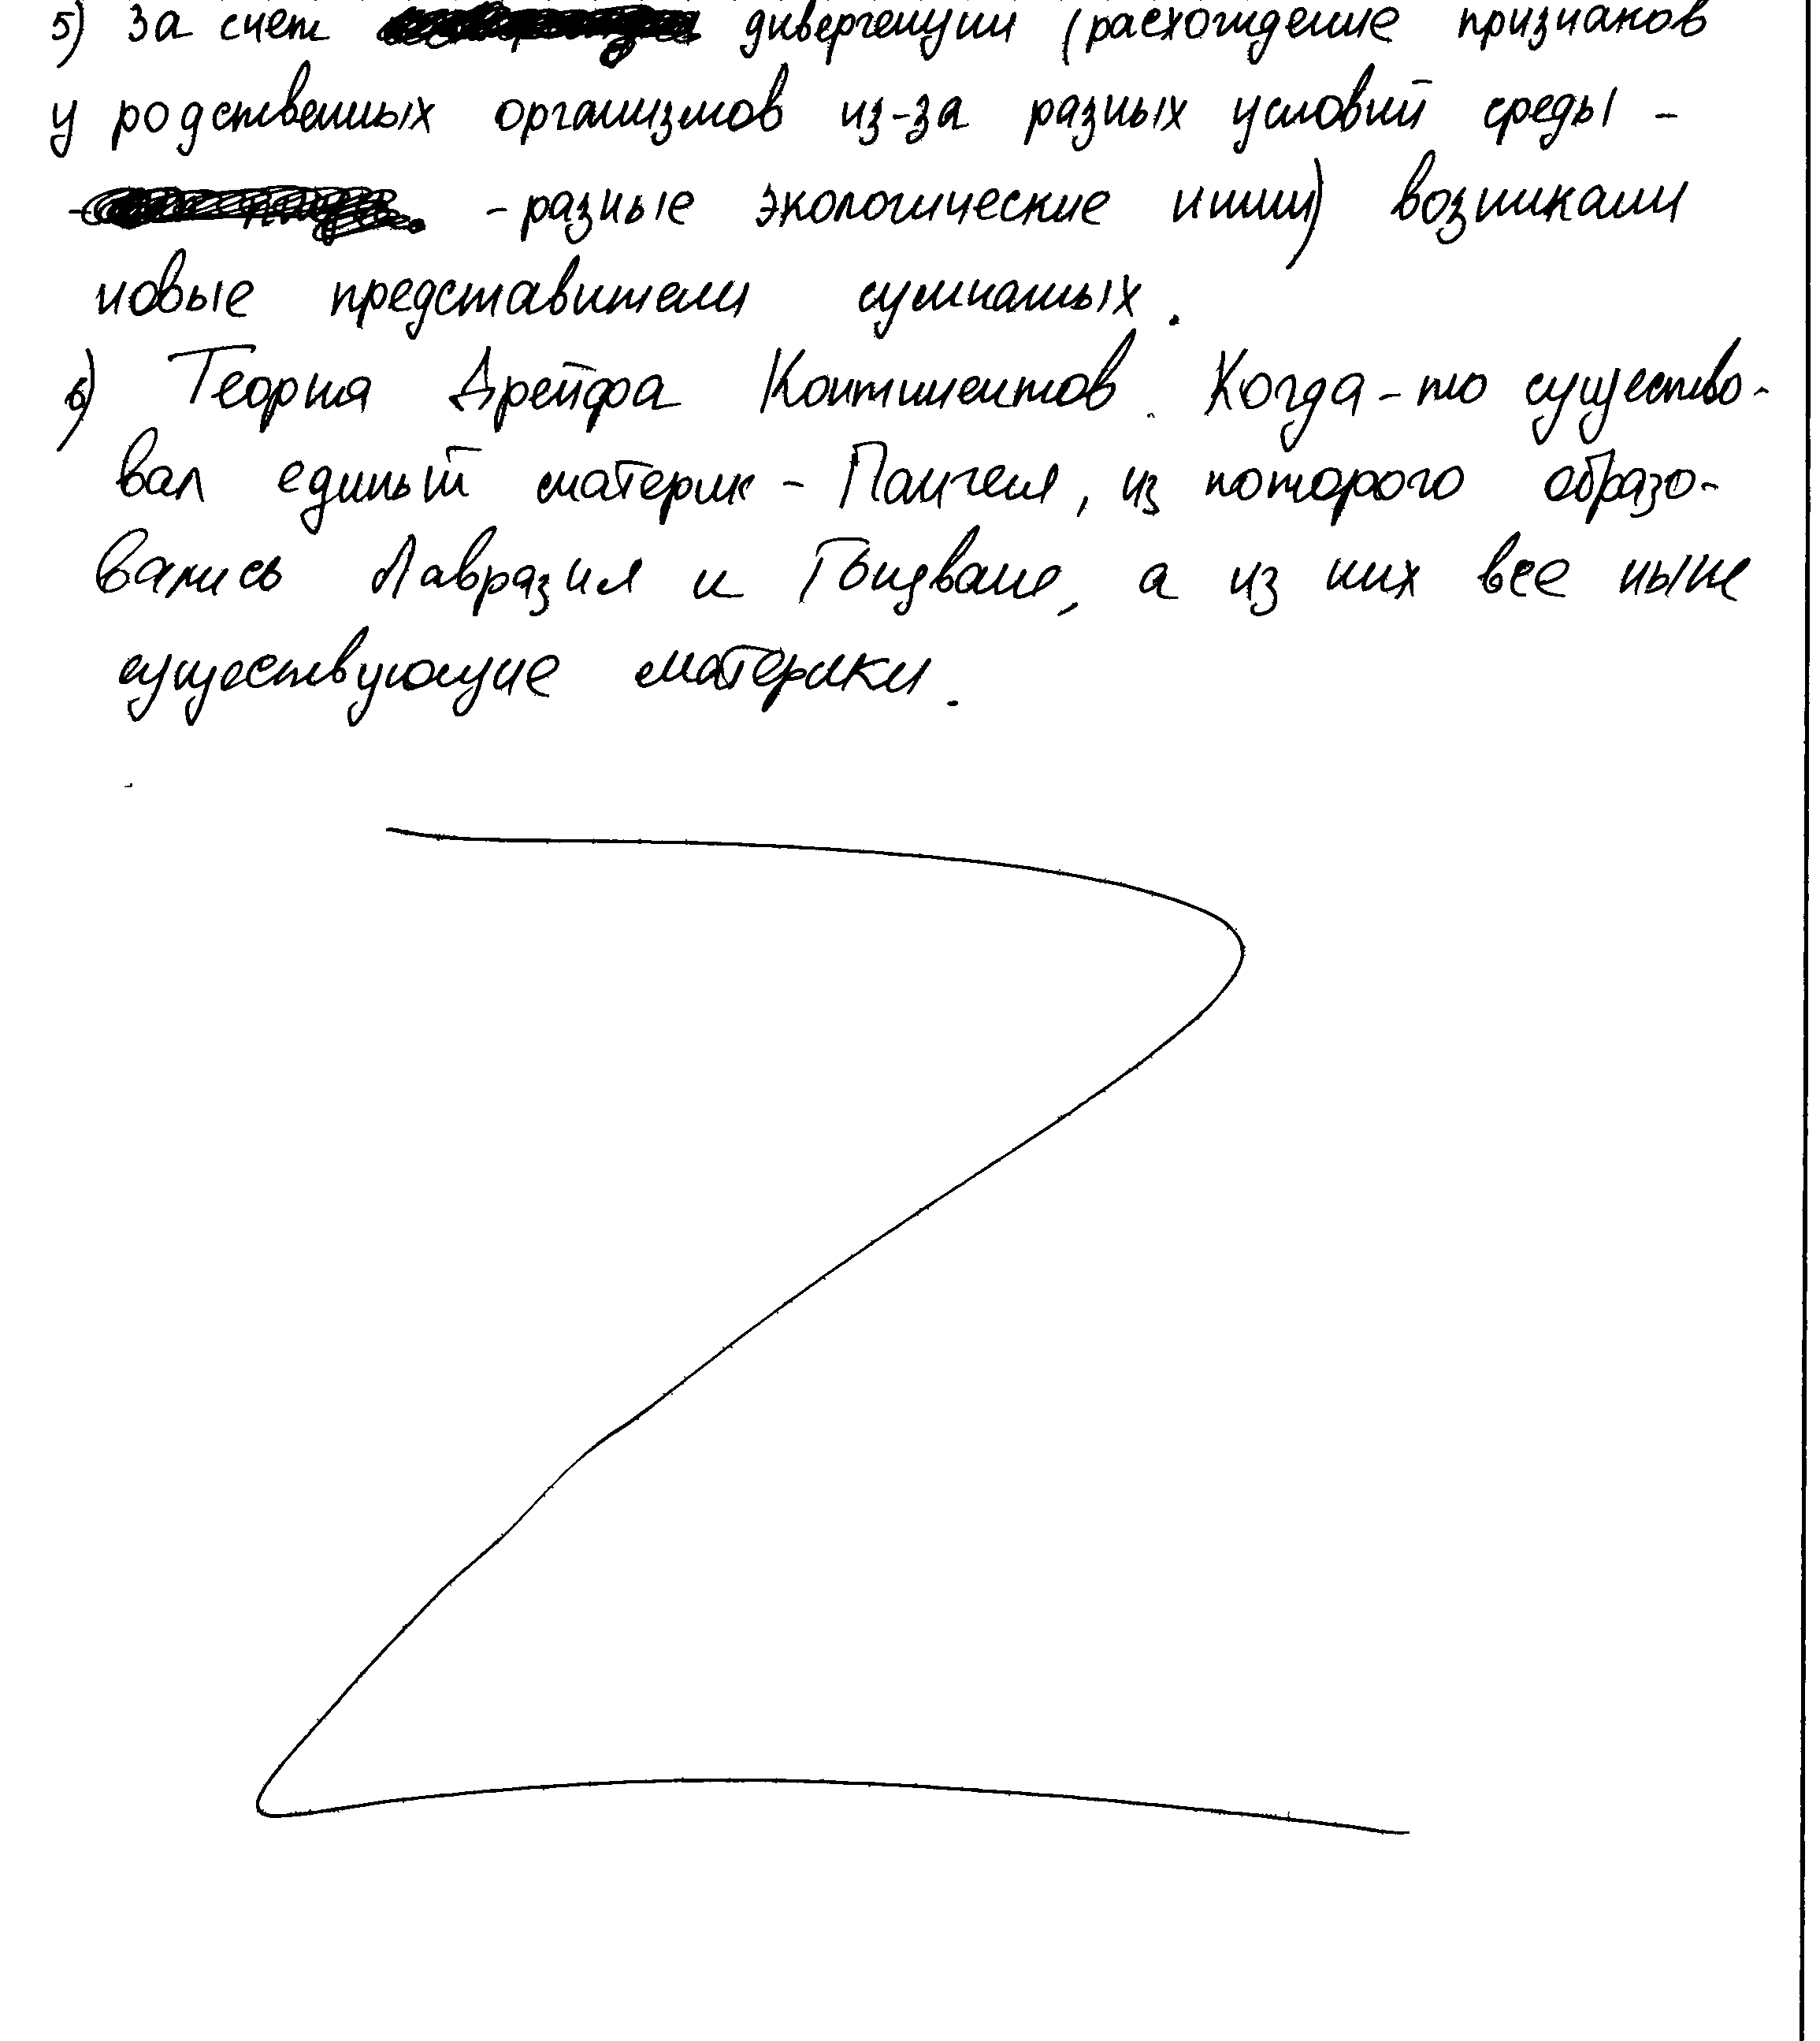 5) За счет дивергенции (расхождение признаков
у родственных организмов из-за разных условий среды -
- разные экологические ниши) возникали
новые представители сумчатых.
6) Теория Дрейфа Континентов. Когда-то существо-
вал единый материк - Пангея, из которого образо-
вались Лавразия и Гондвана, а из них все ныне
существующие материки.